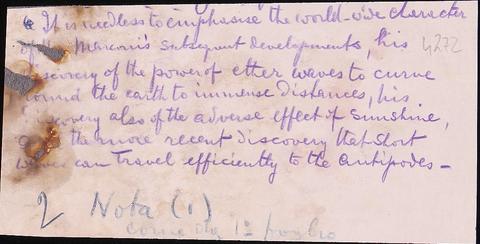 It is needless to emphasise the world-wide character
of the Marconi's subsequent developments, his
discovery of the power of ether waves to curve
round the earth to immense distances, his
discovery also of the adverse effect of sunshine,
the more recent discovery that short
waves can travel efficiently to the antipodes -
4272
2 Nota (1)
come da 1º